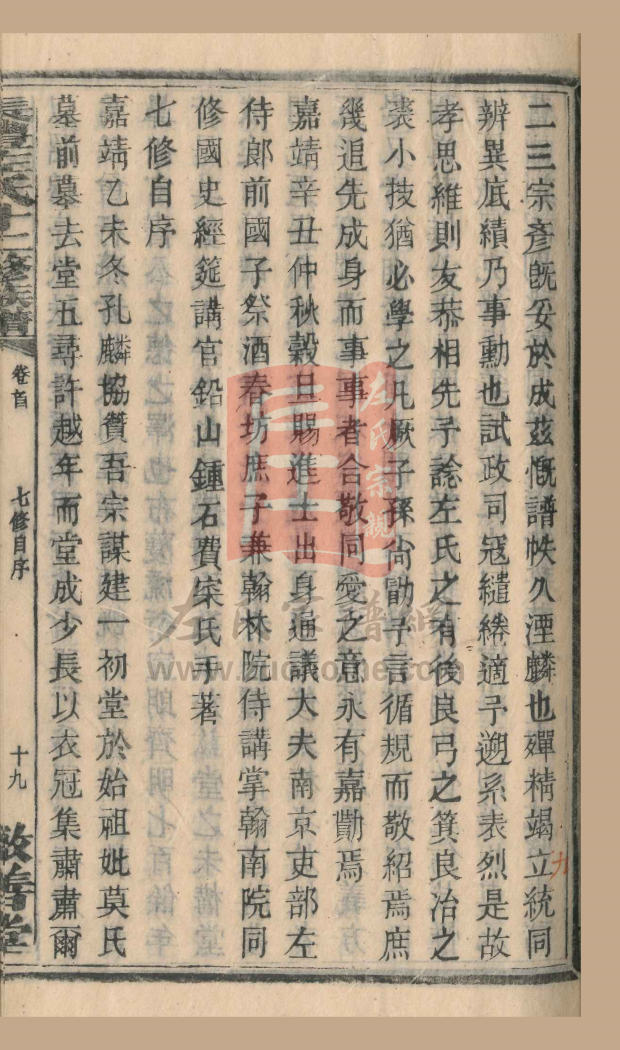 二三宗彥既妥於成茲慨譜帙久湮麟也殫精竭立統同
辨異底績乃事勳也試政司寇繾綣適予遡系表烈是故
孝思維則友恭相先予諗左氏之有後良弓之箕良冶之
裘小技猶必學之凡厥子孫尙勖予言循規而敬紹焉庶
幾追先成身而事事者合敬同愛之意永有嘉勩焉
嘉靖辛丑仲秋穀旦賜進士出身通議大夫南京吏部左
侍郎前國子祭酒春坊庶子兼翰林院侍講掌翰南院同
修國史經筵講官鉛山鍾石費寀氏手著
七修自序
嘉靖乙未冬孔麟協贊吾宗謀建一初堂於始祖妣莫氏
墓前墓去堂五尋許越年而堂成少長以衣冠集肅肅爾
左氏十二修族譜
卷首
七修自序
十九
敬書堂
九
左氏宗親
左氏家譜網
www.zuojiapu.com